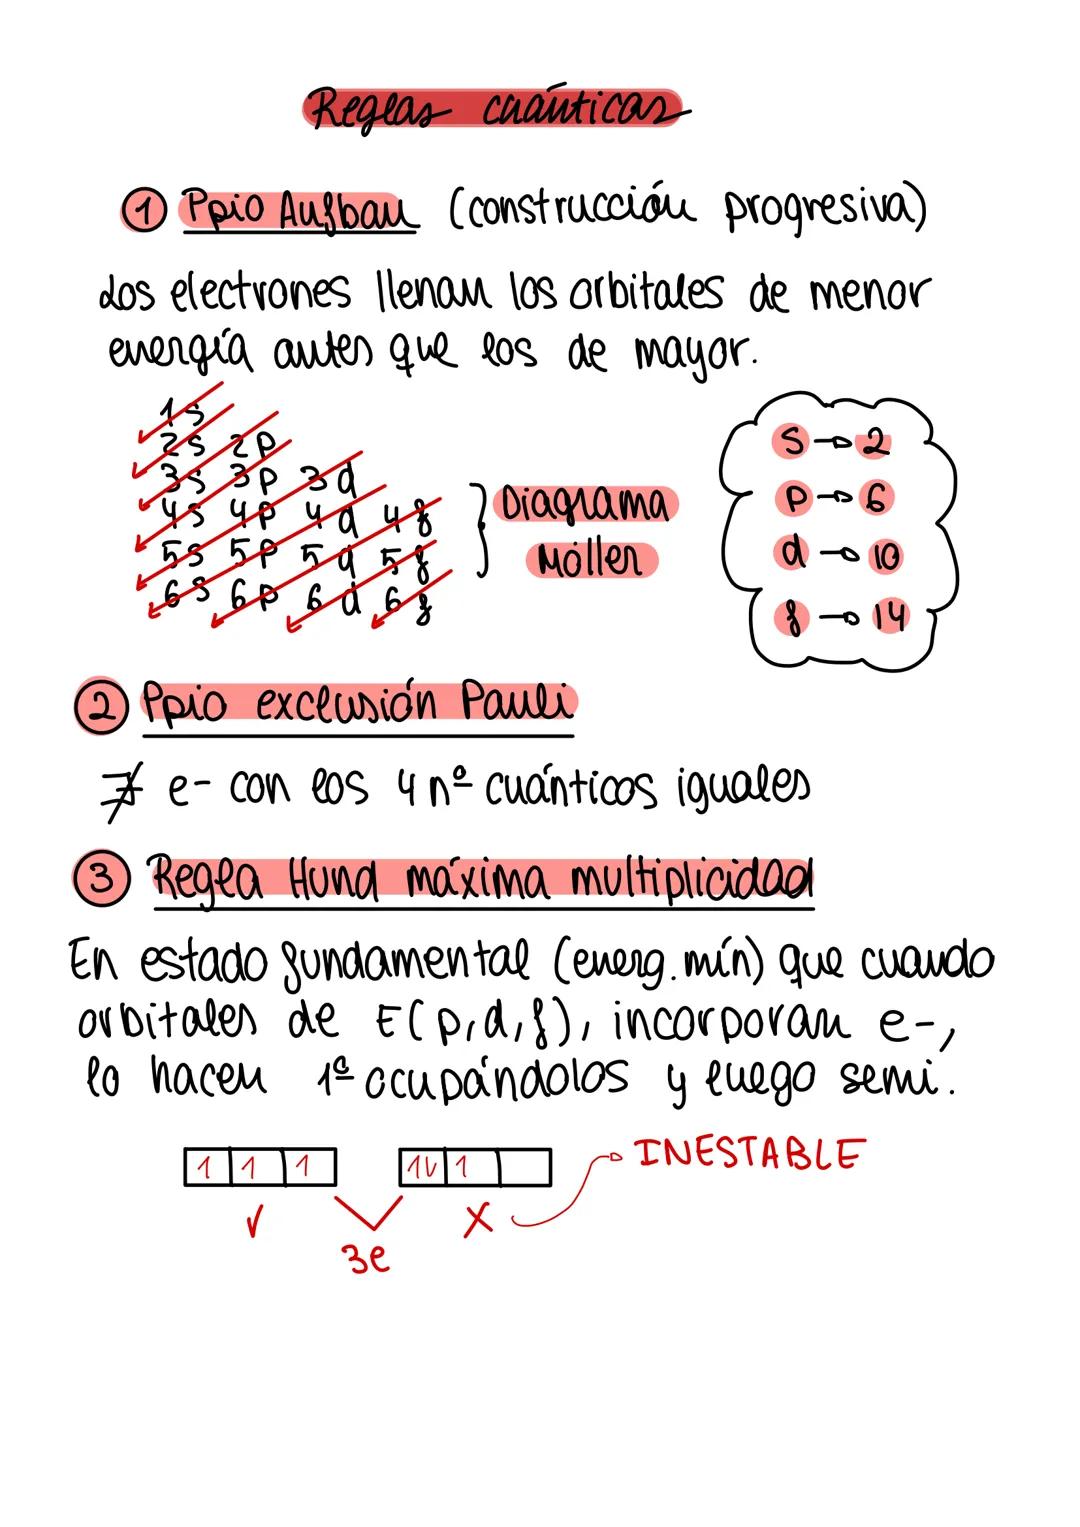 Reglas cuánticas
① Ppio Aufbau (construcción progresiva)
Los electrones llenan los orbitales de menor
energía antes que los de mayor.
1s
2s 2p
3s 3p 3d
4s 4p 4d 4f
5s 5p 5d 5f
6s 6p 6d 6f
} Diagrama
Möller
s → 2
p → 6
d → 10
f → 14
② Ppio exclusión Pauli
∄ e- con los 4 nº cuánticos iguales
③ Regla Hund máxima multiplicidad
En estado fundamental (energ. mín) que cuando
orbitales de E(p,d,f), incorporan e-,
lo hacen 1º ocupándolos y luego semi.
1 1 1
1v 1
→ INESTABLE
✓ X
3e